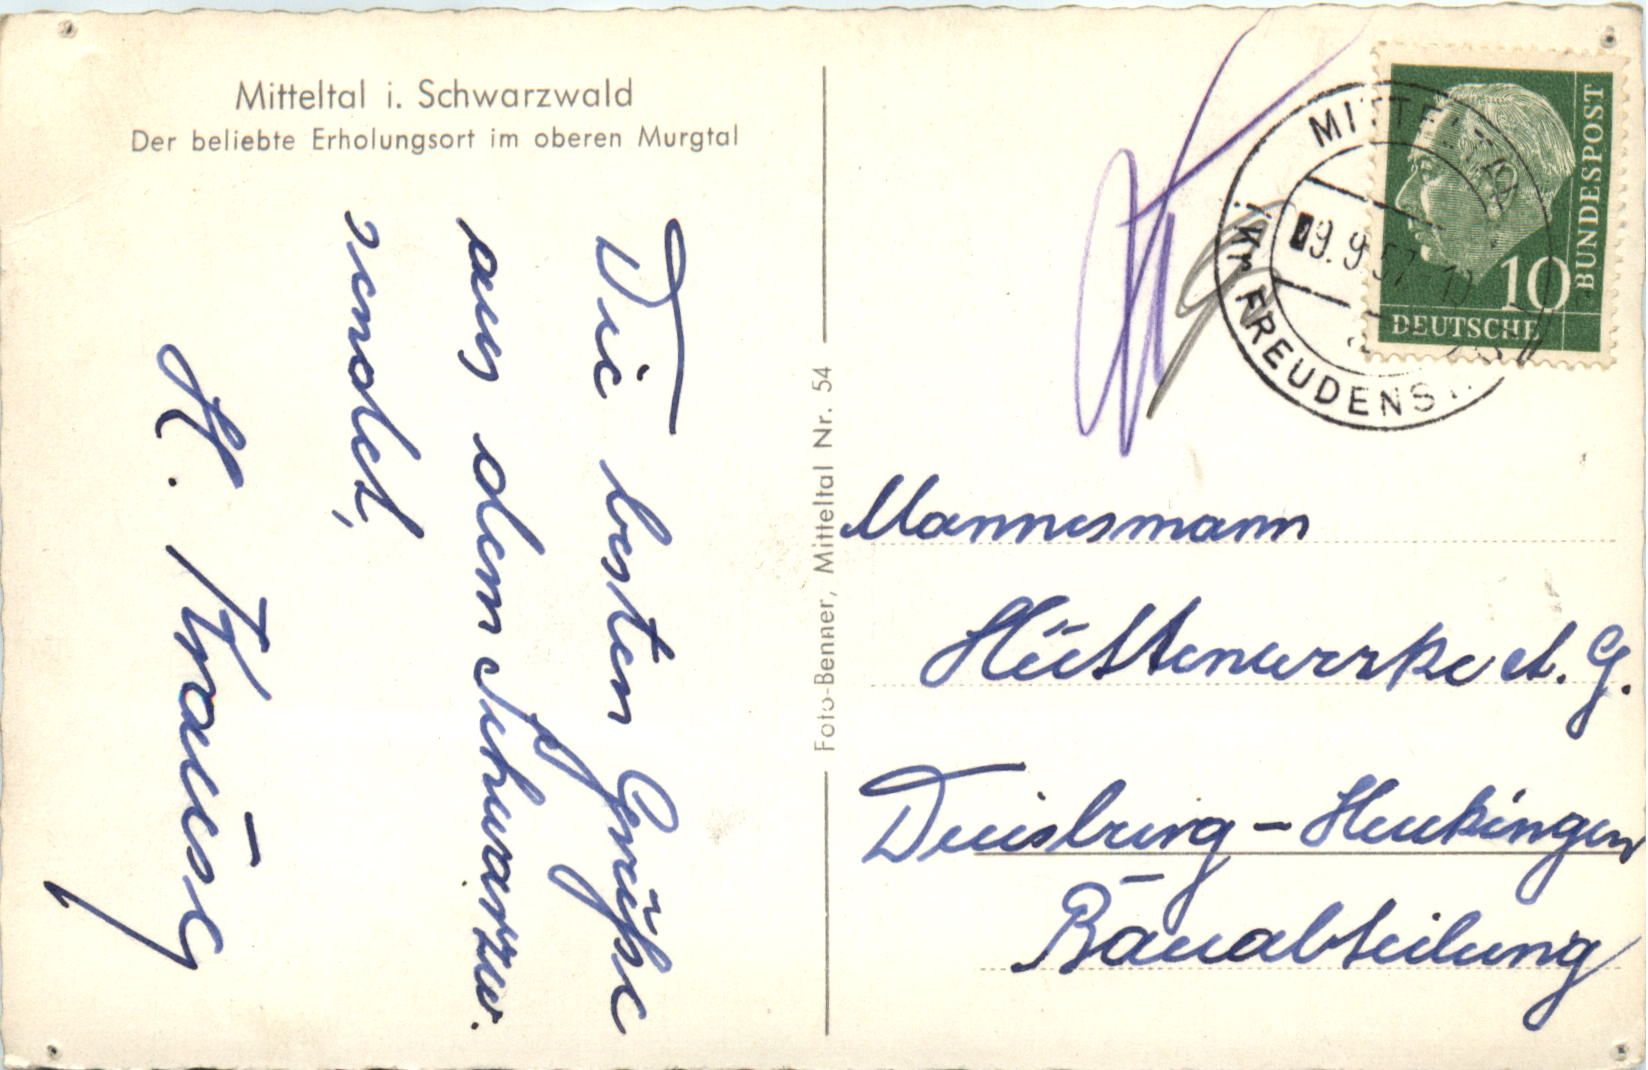 Mitteltal i. Schwarzwald
Der beliebte Erholungsort im oberen Murgtal
Die besten Grüße
aus dem Schwarzw.
sendet,
H.
Foto-Benner, Mitteltal Nr. 54
MITTELTAL
9.9.57
Kr. FREUDENST
BUNDESPOST
10
DEUTSCHE
Mannesmann
Hüttenwerke A. G.
Duisburg - Huckingen
Bauabteilung